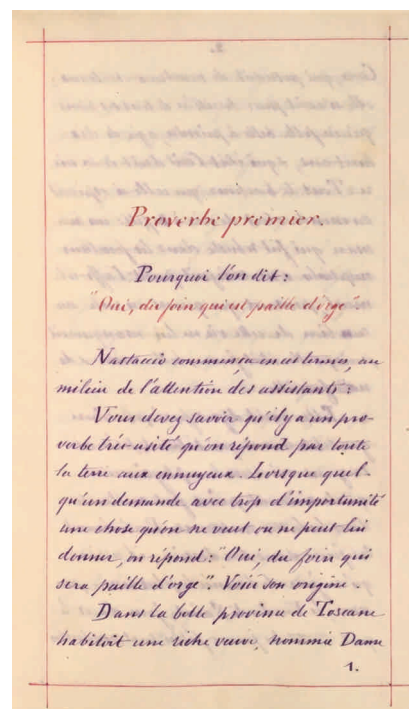 Proverbe premier.
Pourquoi l'on dit :
"Oui, du foin qui est paille d'orge".
Nastaccio commença en ces termes, au
milieu de l'attention des assistants :
Vous devez savoir qu'il y a un pro-
verbe très usité qu'on répond par toute
la terre aux ennuyeux. Lorsque quel-
qu'un demande avec trop d'importunité
une chose qu'on ne veut ou ne peut lui
donner, on répond : "Oui, du foin qui
sera paille d'orge". Voici son origine.
Dans la belle province de Toscane
habitait une riche veuve, nommée Dame
1.